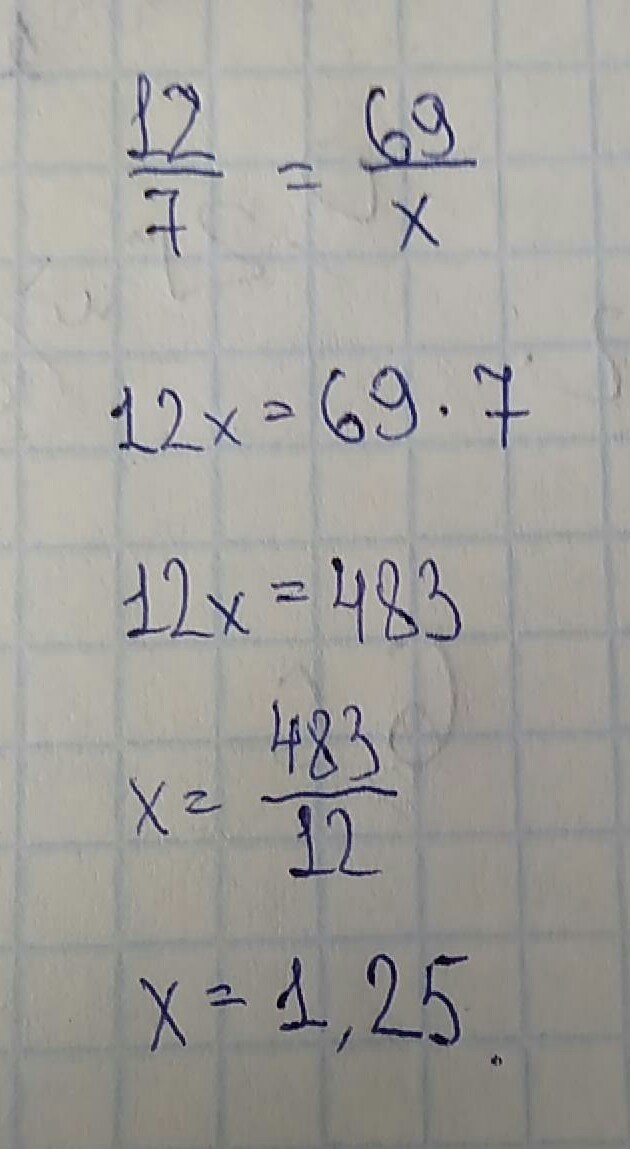 12/7 = 69/x
12x = 69 · 7
12x = 483
x = 483/12
x = 1,25.